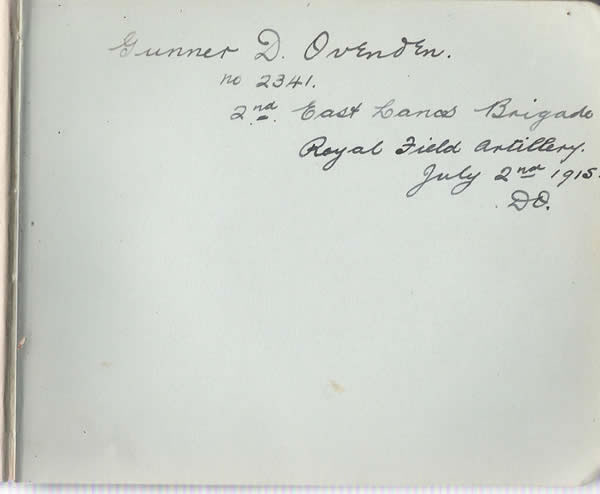 Gunner D. Ovenden.
no 2341.
2nd. East Lancs Brigade
Royal Field Artillery.
July 2nd 1915.
D.O.